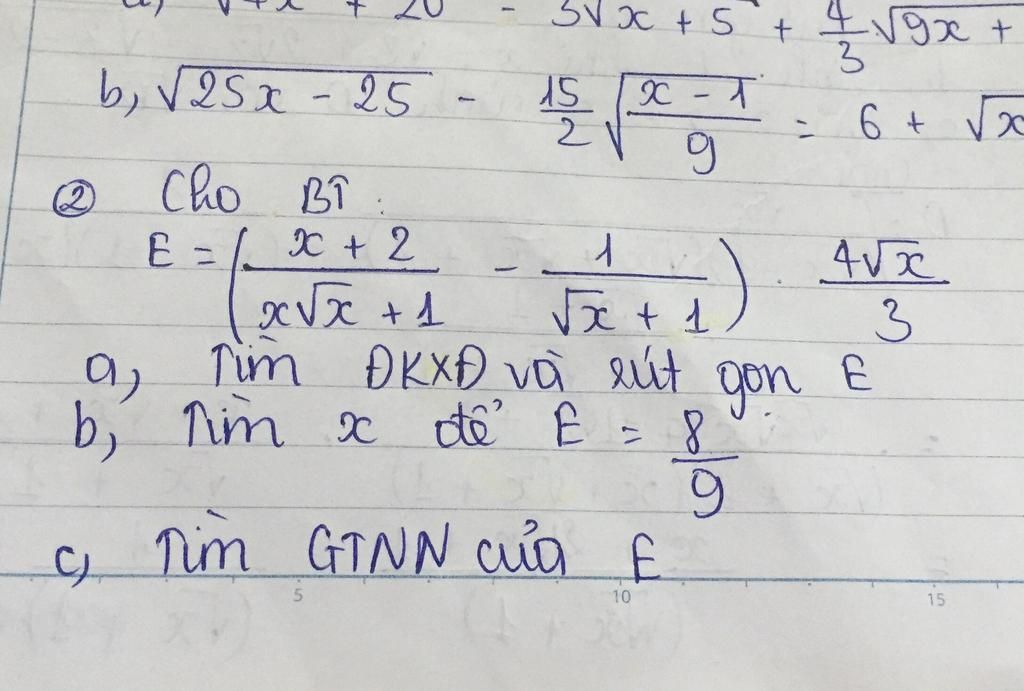 √4x + 20 - 3√x + 5 + 4/3 √9x +
b, √25x - 25 - 15/2 √(x - 1)/9 = 6 + √x
② Cho BT :
E = ( (x + 2)/(x√x + 1) - 1/(√x + 1) ) . 4√x/3
a, Tìm ĐKXĐ và rút gọn E
b, Tìm x để E = 8/9
c, Tìm GTNN của E
5 10 15